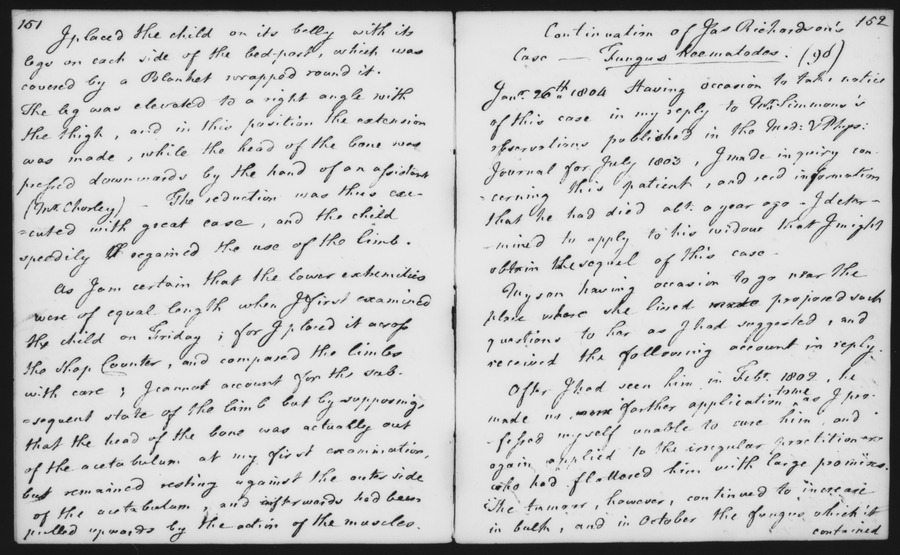 151
I placed the child on its belly with its
legs on each side of the bed-post, which was
covered by a Blanket wrapped round it.
The leg was elevated to a right angle with
the thigh, and in this position the extension
was made, while the head of the bone was
pressed downwards by the hand of an assistant
(Mr. Chorley) - The reduction was thus exe-
=cuted with great ease, and the child
speedily regained the use of the limb.
As I am certain that the lower extremities
were of equal length when I first examined
the child on Friday; for I placed it across
the shop Counter, and composed the limbs
with care; I cannot account for the sub-
=sequent state of the limb but by supposing
that the head of the bone was actually out
of the acetabulum at my first examination,
but remained resting against the outer side
of the acetabulum, and afterwards had been
pulled upwards by the action of the muscles.
152
Continuation of Jas Richardson's
Case — Fungus Haematodes. (98)
Jany. 26th 1804 Having occasion to take notice
of this case in my reply to Mr. Simmons's
observations published in the Med: & Phys:
Journal for July 1803, I made inquiry con-
-cerning this patient, and recd information
that he had died abt. a year ago - I deter-
-mined to apply to his widow that I might
obtain the sequel of this case.
My son having occasion to go near the
place where she lived proposed such
questions to her as I had suggested, and
received the following account in reply.
After I had seen him in Febr. 1802, he
made us farther application as I pro-
-fessed myself unable to cure him, and
again applied to the irregular practitioner
who had flattered him with large promises.
The tumour, however, continued to increase
in bulk, and in October the fungus which it
contained